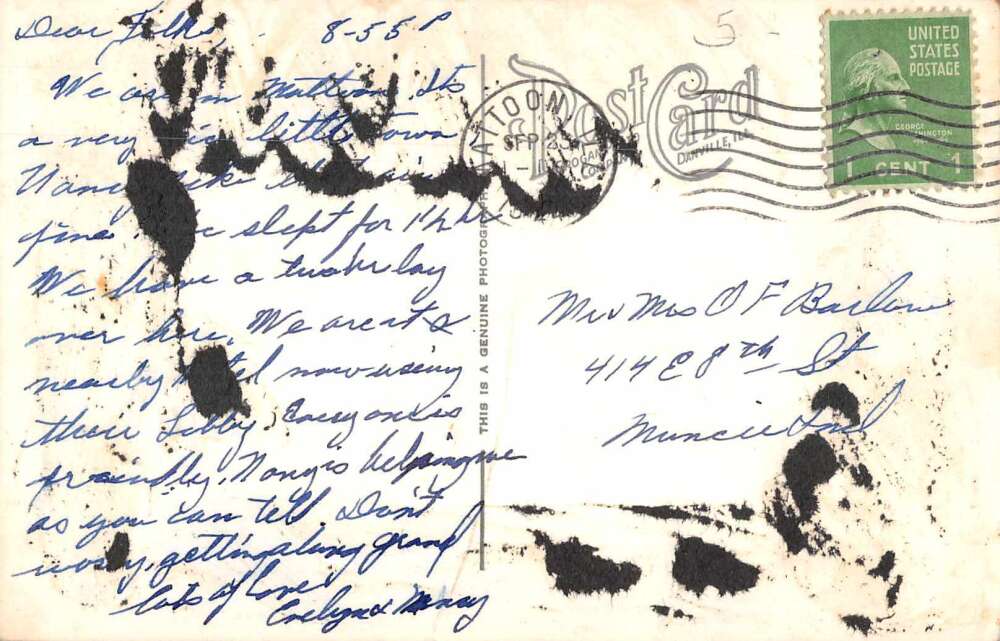 Dear Folks, 8-55 P
We are in Mattoon. Its
a very little town
Nancy
fine. slept for 1½ hr
We have a two hr lay
over here. We are at a
nearby hotel now using
their Lobby. Everyone is
friendly. Nancy is helping me
as you can tell. Don't
worry, getting along grand
Lots of Love
Evelyn & Nancy
THIS IS A GENUINE PHOTOGRAPH
Post Card
DANVILLE, ILL.
MATTOON
SEP 23
5
UNITED
STATES
POSTAGE
GEORGE
WASHINGTON
1 CENT 1
Mr Mrs O F Barlow
414 E 8th St
Muncie Ind